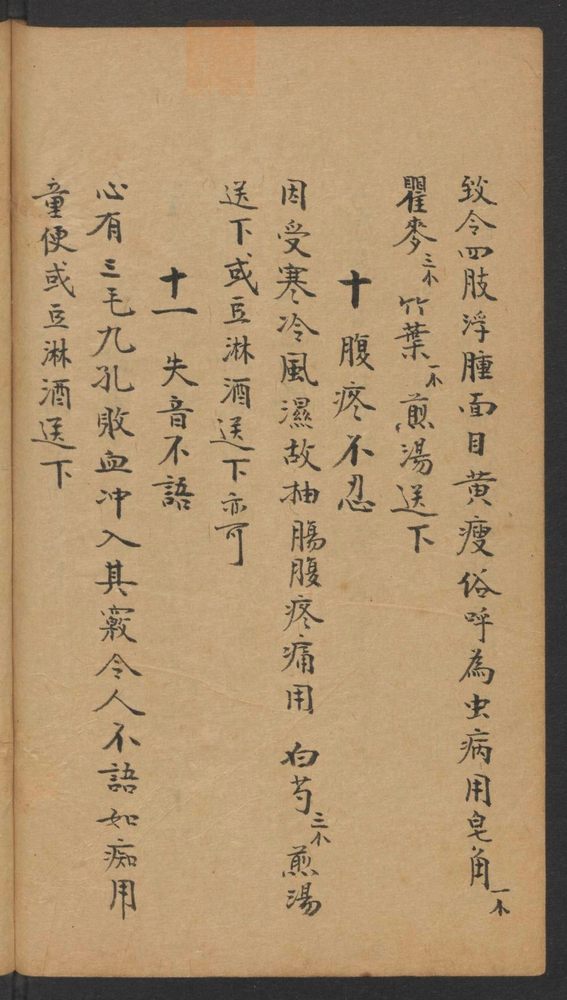 致令四肢浮腫面目黃瘦俗呼為虫病用皂角一个
瞿麥三个竹葉一个煎湯送下
十腹疼不忍
因受寒冷風濕故抽腸腹疼痛用白芍三个煎湯
送下或豆淋酒送下亦可
十一失音不語
心有三毛九孔敗血冲入其竅令人不語如痴用
童便或豆淋酒送下